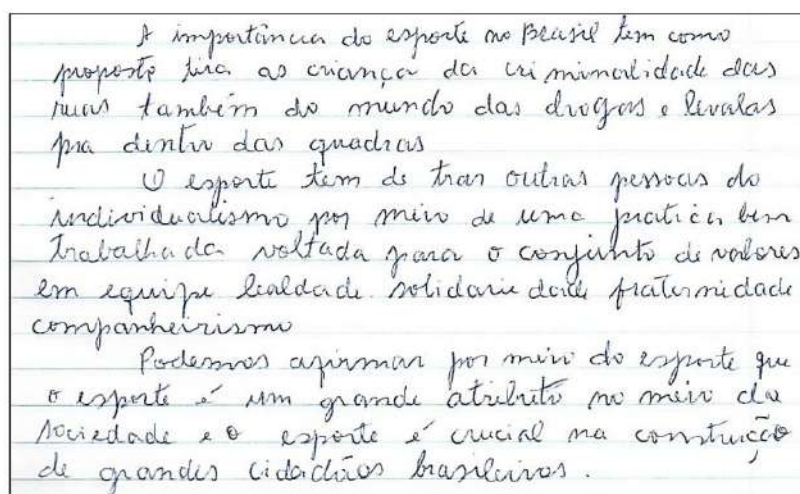 A importância do esporte no Brasil tem como
proposta tira as criança da criminalidade das
ruas também do mundo das drogas e levalas
pra dentro das quadras
O esporte tem de tras outras pessoas do
individualismo por meio de uma pratica bem
trabalhada voltada para o conjunto de valores
em equipe lealdade solidariedade fraternidade
companheirismo
Podemos afirmar por meio do esporte que
o esporte é um grande atributo no meio da
sociedade e o esporte é crucial na construção
de grandes cidadãos brasileiros.